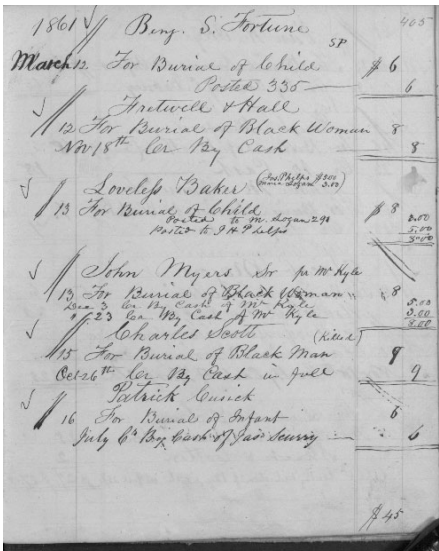 1861 Benj. S. Fortune 465
SP
March 12 For Burial of Child $ 6
Posted 335 — 6
Fretwell & Hall
12 For Burial of Black Woman 8
Nov 18th Cr By Cash — 8
Loveless Baker (Jos. Phelps $5.00
Maria Logan 3.00)
13 For Burial of Child $ 8
Posted to M. Logan 290 3.00
Posted to J H Phelps 5.00
8.00
John Myers Sr pr Mr Kyle
13 For Burial of Black Woman " 8
Dec 3 Cr By Cash of Mr Kyle 5.00
" 23 Cr By Cash of Mr Kyle 3.00
8.00
Charles Scott (Killed)
15 For Burial of Black Man 9
Oct 26th Cr By Cash in full 9
Patrick Cusick
16 For Burial of Infant 6
July 6th By Cash of Jas Scurry — 6
$ 45